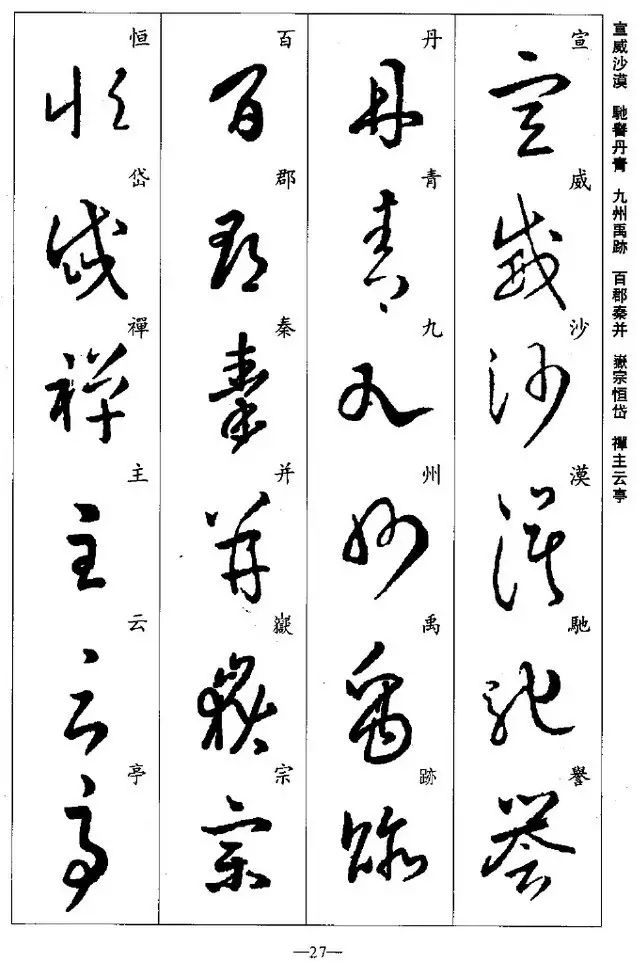 宣威沙漠　馳譽丹青　九州禹跡　百郡秦并　嶽宗恒岱　禪主云亭
宣威沙漠馳譽
丹青九州禹跡
百郡秦并嶽宗
恒岱禪主云亭
—27—